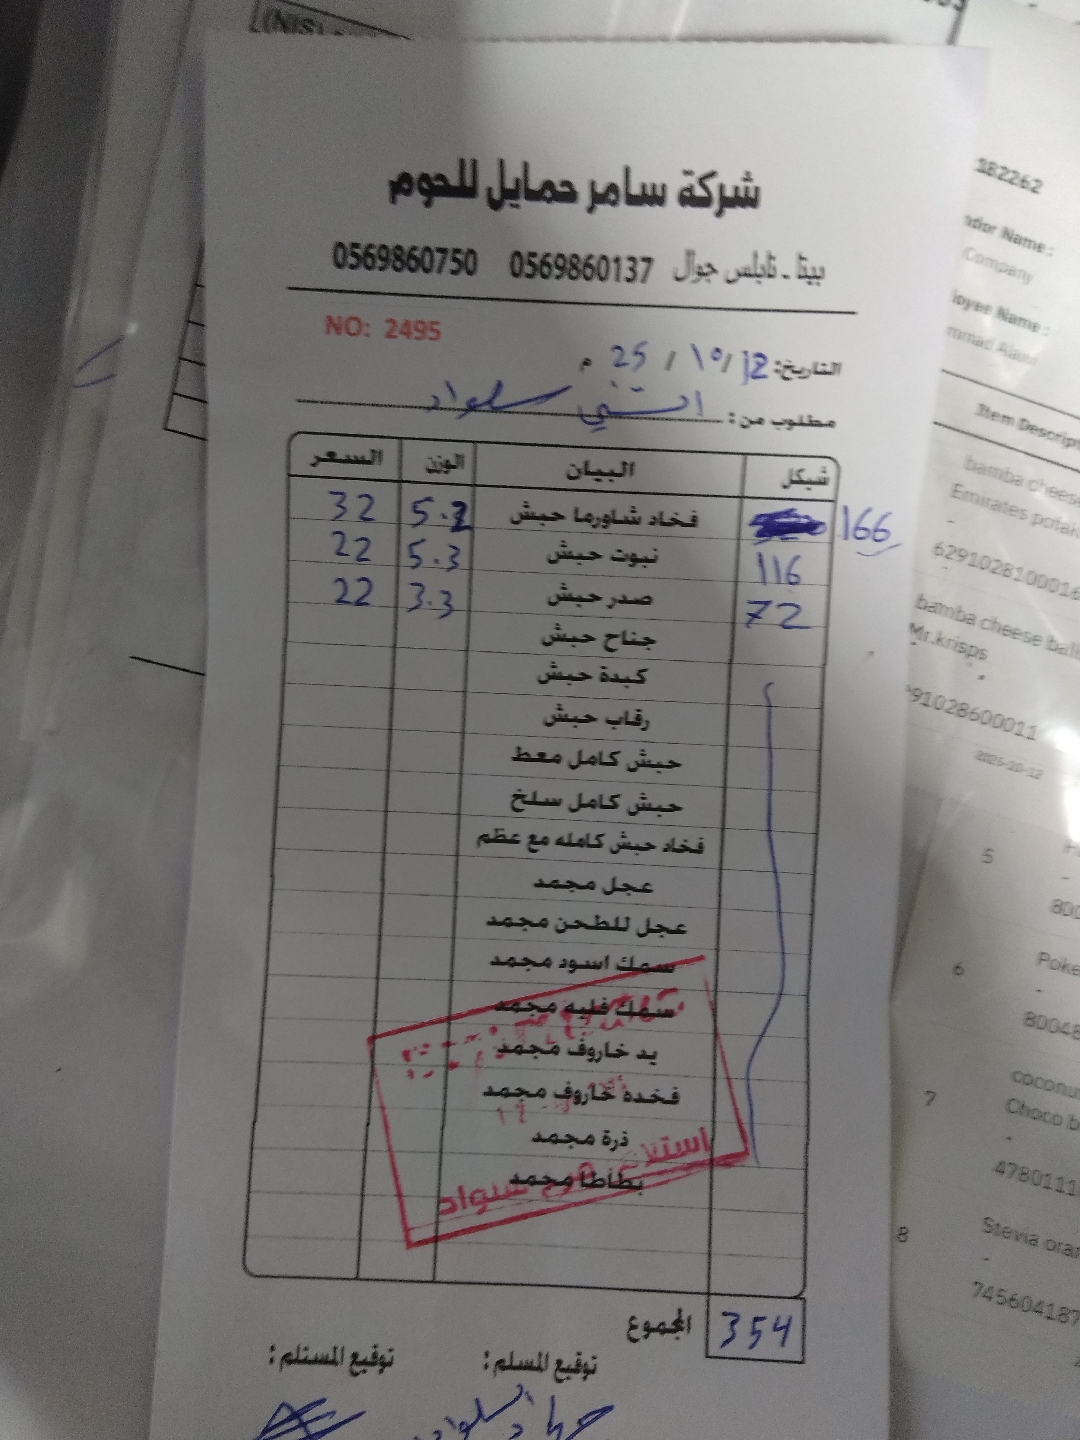 شركة سامر حمايل للحوم
بيتا - نابلس جوال 0569860137 0569860750
NO: 2495
التاريخ: 12 / 10 / 25 م
مطلوب من: الشني سلواد
شيكل البيان الوزن السعر
166 فخاد شاورما حبش 5.2 32
116 نبوت حبش 5.3 22
72 صدر حبش 3.3 22
جناح حبش
كبدة حبش
رقاب حبش
حبش كامل معط
حبش كامل سلخ
فخاد حبش كامله مع عظم
عجل مجمد
عجل للطحن مجمد
سمك اسود مجمد
سمك فليه مجمد
يد خاروف مجمد
فخده خاروف مجمد
ذرة مجمد
بطاطا مجمد
استلام فرع سلواد
المجموع 354
توقيع المسلم: توقيع المستلم:
L(NIS)
182262
Name :
Company
Name :
Item Descrip
bamba cheese
Emirates potak
-
6291028100016
bamba cheese ball
Mr.krisps
91028600011
2025-10-12
5
-
800
6
Poke
-
80048
7
coconu
Choco b
-
4780111
8
Stevia oran
-
745604187